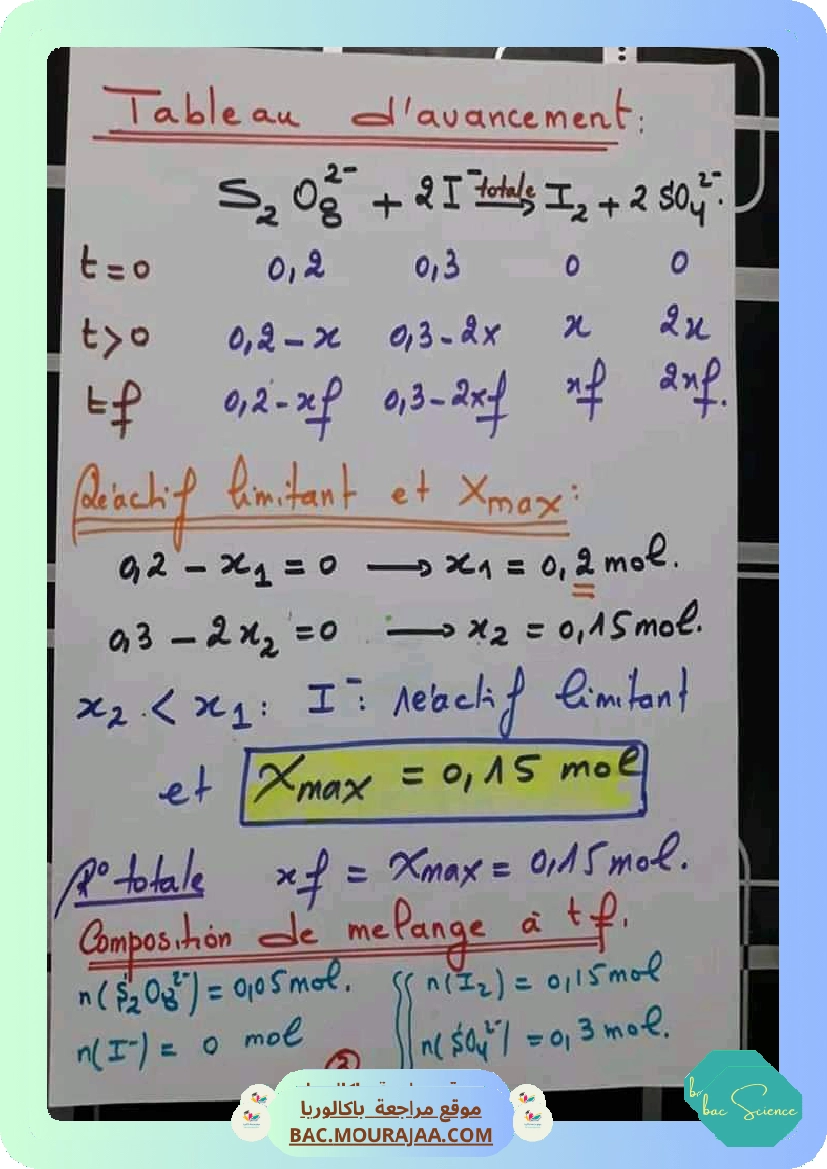 Tableau d'avancement:
S₂O₈²⁻ + 2I⁻ totale→ I₂ + 2SO₄²⁻.
t=0 0,2 0,3 0 0
t>0 0,2-x 0,3-2x x 2x
tf 0,2-xf 0,3-2xf xf 2xf.
Réactif limitant et Xmax:
0,2 - x₁ = 0 → x₁ = 0,2 mol.
0,3 - 2x₂ = 0 → x₂ = 0,15 mol.
x₂ < x₁: I⁻: réactif limitant
et Xmax = 0,15 mol
R° totale xf = Xmax = 0,15 mol.
Composition de melange à tf.
n(S₂O₈²⁻) = 0,05 mol. n(I₂) = 0,15 mol
n(I⁻) = 0 mol n(SO₄²⁻) = 0,3 mol.
موقع مراجعة باكالوريا
BAC.MOURAJAA.COM
bac Science